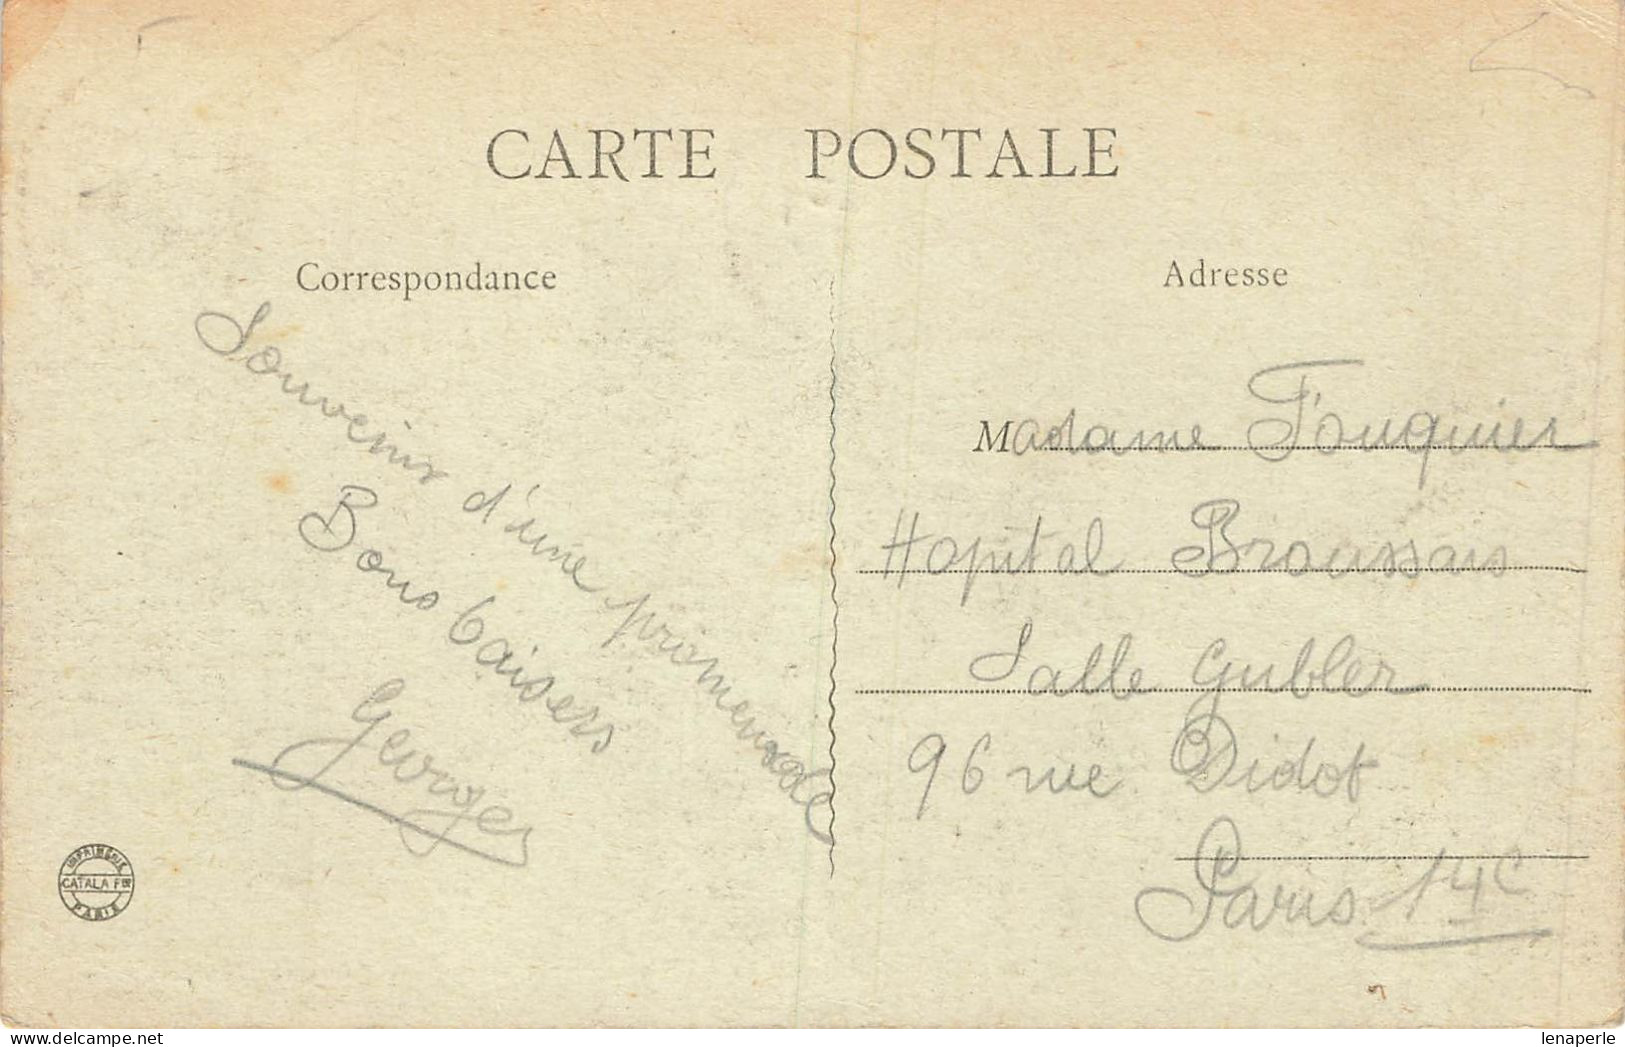 CARTE POSTALE
Correspondance
Souvenir d'une promenade
Bons baisers
Georges
IMPRIMERIE
CATALA Fres
PARIS
Adresse
Madame Fouquier
Hopital Broussais
Salle Gubler
96 rue Didot
Paris 14e
lenaperle